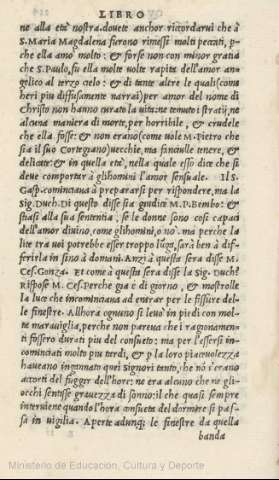 LIBRO
ne alla età nostra. douete anchor ricordarui che à
S. Maria Magdalena furono rimessi molti peccati, p-
che ella amò molto: & forse non con minor gratia
che S. Paulo, fu ella molte uolte rapita dell'amor an-
gelico al terzo cielo: & di tante altre le quali (come
heri piu diffusamente narrai) per amor del nome di
Christo non hanno curato la uita: ne temuto i stratij, ne
alcuna maniera di morte, per horribile, & crudele
che ella fosse: & non erano (come uole M. Pietro che
sia il suo Cortegiano) uecchie, ma fanciulle tenere, &
delicate: & in quella età, nella quale esso dice che si
deue comportar à glihomini l'amor sensuale. Il S.
Gasp. cominciaua à prepararsi per rispondere, ma la
Sig. Duch. Di questo disse sia giudice M. P. Bembo: &
stiasi alla sua sententia, se le donne sono cosi capaci
dell'amor diuino, come glihomini, o nò. ma perche la
lite tra uoi potrebbe esser troppo lũga, sarà ben à dif-
ferirla in sino à domani. Anzi à questa sera disse M.
Ces. Gonza. Et come à questa sera disse la Sig. Duch?
Rispose M. Ces. Perche gia è di giorno, & mostrolle
la luce che incominciaua ad entrar per le fissure del-
le finestre. Allhora ognuno si leuò in piedi con mol-
te marauiglia, perche non pareua che i ragionamen-
ti fossero durati piu del consueto: ma per l'essersi in-
cominciati molto piu terdi, & p la loro piaceuolezza
haueano ingannato quei Signori tanto, che nõ s'erano
accorti del fuggir dell'hore: ne era alcuno che ne gli-
occhi sentisse grauezza di sonno: il che quasi sempre
interuiene quando l'hora consueta del dormire si pas-
sa in uigilia. Aperte adunq; le finestre da quella
banda
Ministerio de Educación, Cultura y Deporte